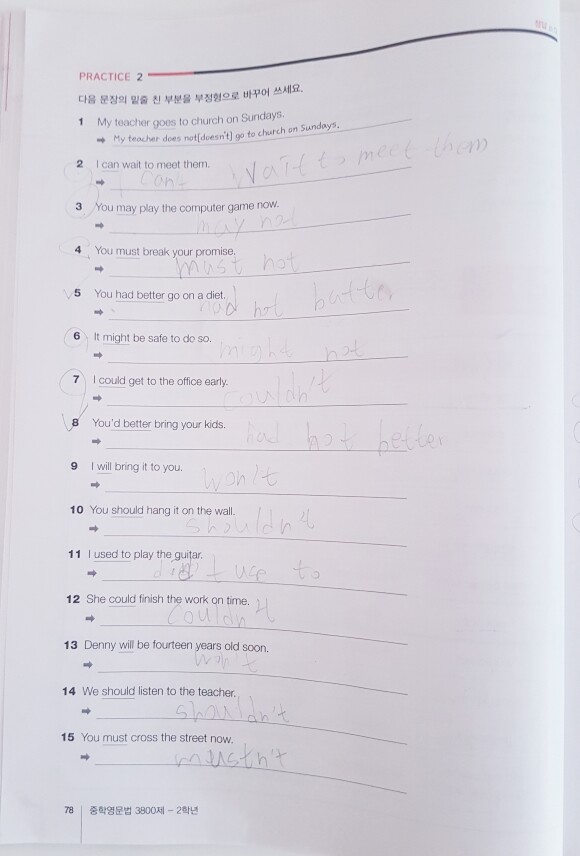 PRACTICE 2
다음 문장의 밑줄 친 부분을 부정형으로 바꾸어 쓰세요.
1 My teacher goes to church on Sundays.
➡ My teacher does not[doesn't] go to church on Sundays.
2 I can wait to meet them.
➡ I can't wait to meet them
3 You may play the computer game now.
➡ may not
4 You must break your promise.
➡ must not
5 You had better go on a diet.
➡ had not butter
6 It might be safe to do so.
➡ might not
7 I could get to the office early.
➡ couldn't
8 You'd better bring your kids.
➡ had not better
9 I will bring it to you.
➡ won't
10 You should hang it on the wall.
➡ shouldn't
11 I used to play the guitar.
➡ use to
12 She could finish the work on time.
➡ couldn't
13 Denny will be fourteen years old soon.
➡ won't
14 We should listen to the teacher.
➡ shouldn't
15 You must cross the street now.
➡ mustn't
78 중학영문법 3800제 – 2학년